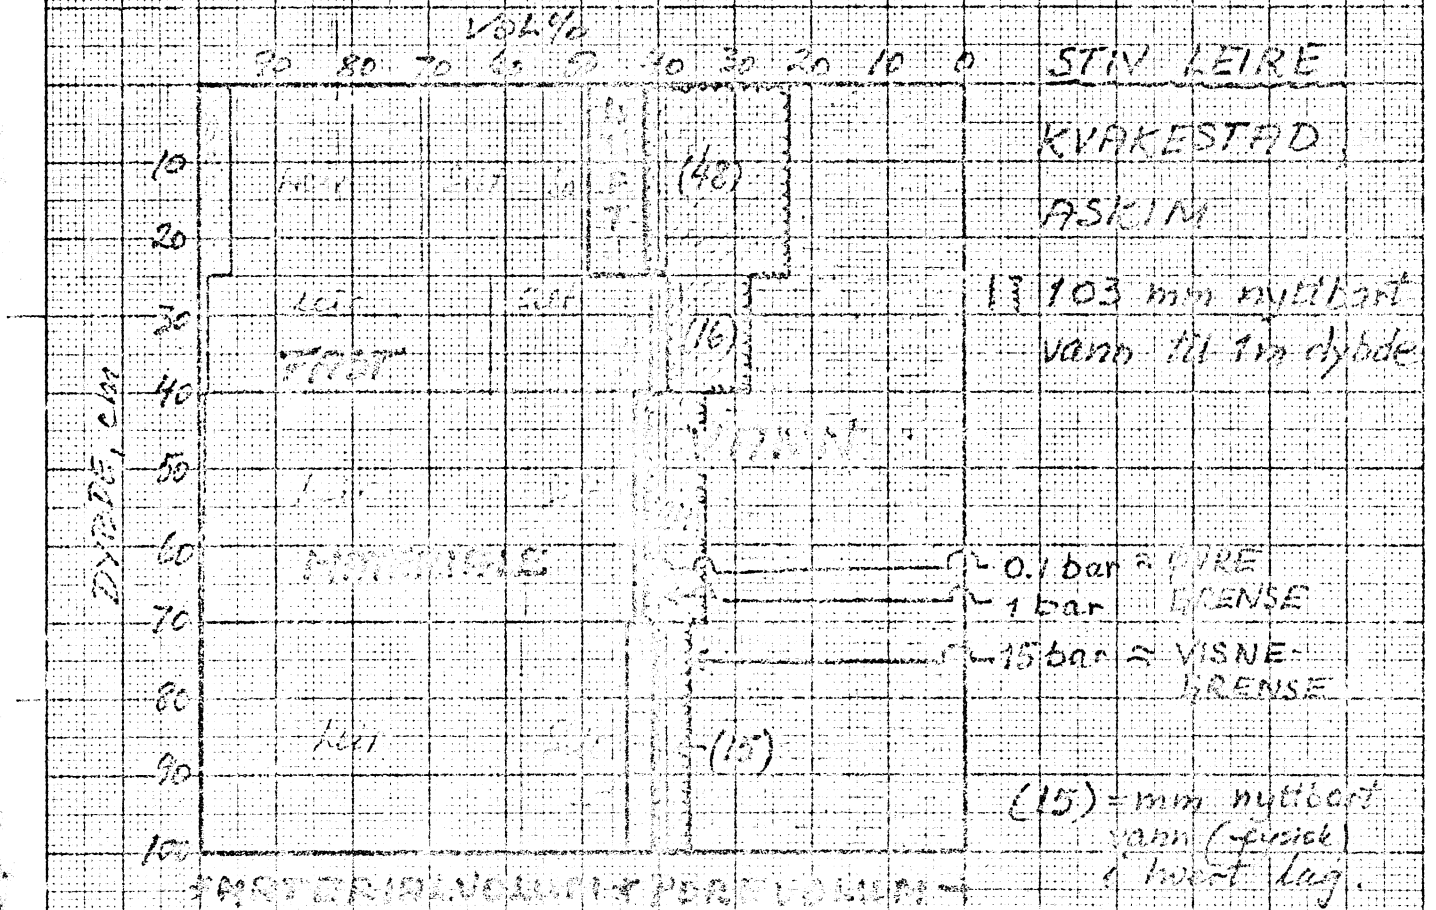 VOL%
90 80 70 60 50 40 30 20 10 0
STIV LEIRE
KVAKESTAD,
ASKIM
103 mm nyttbart
vann til 1m dybde
DYBDE, cm
10
20
30
40
50
60
70
80
90
100
Leir Silt
(48)
Leir Silt
(16)
FAST
VANN
Leir
MATERIALE
0.1 bar ≈ ØVRE
GRENSE
1 bar
15 bar ≈ VISNE-
GRENSE
Leir Silt
(15)
(15) = mm nyttbart
vann (fysisk)
i hvert lag.
MATERIALVOLUM POREVOLUM